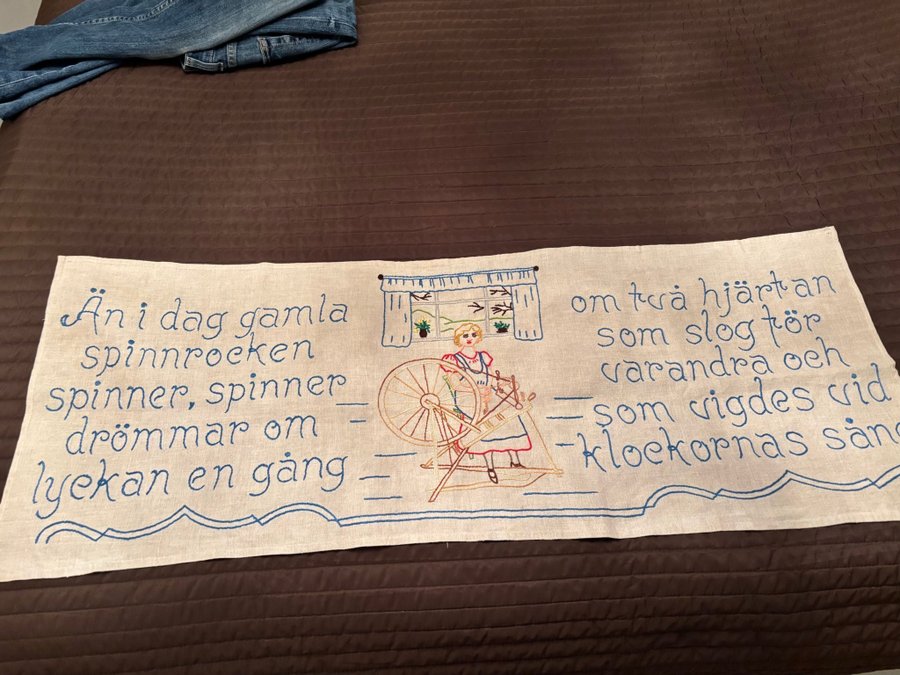 Än i dag gamla
spinnrocken
spinner, spinner
drömmar om
lyckan en gång
om två hjärtan
som slog för
varandra och
som vigdes vid
klockornas sång